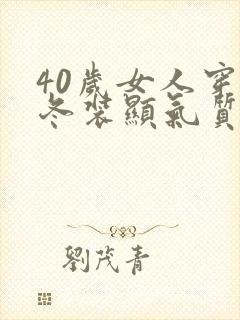 40歲女人穿
冬裝顯氣質
劉茂青